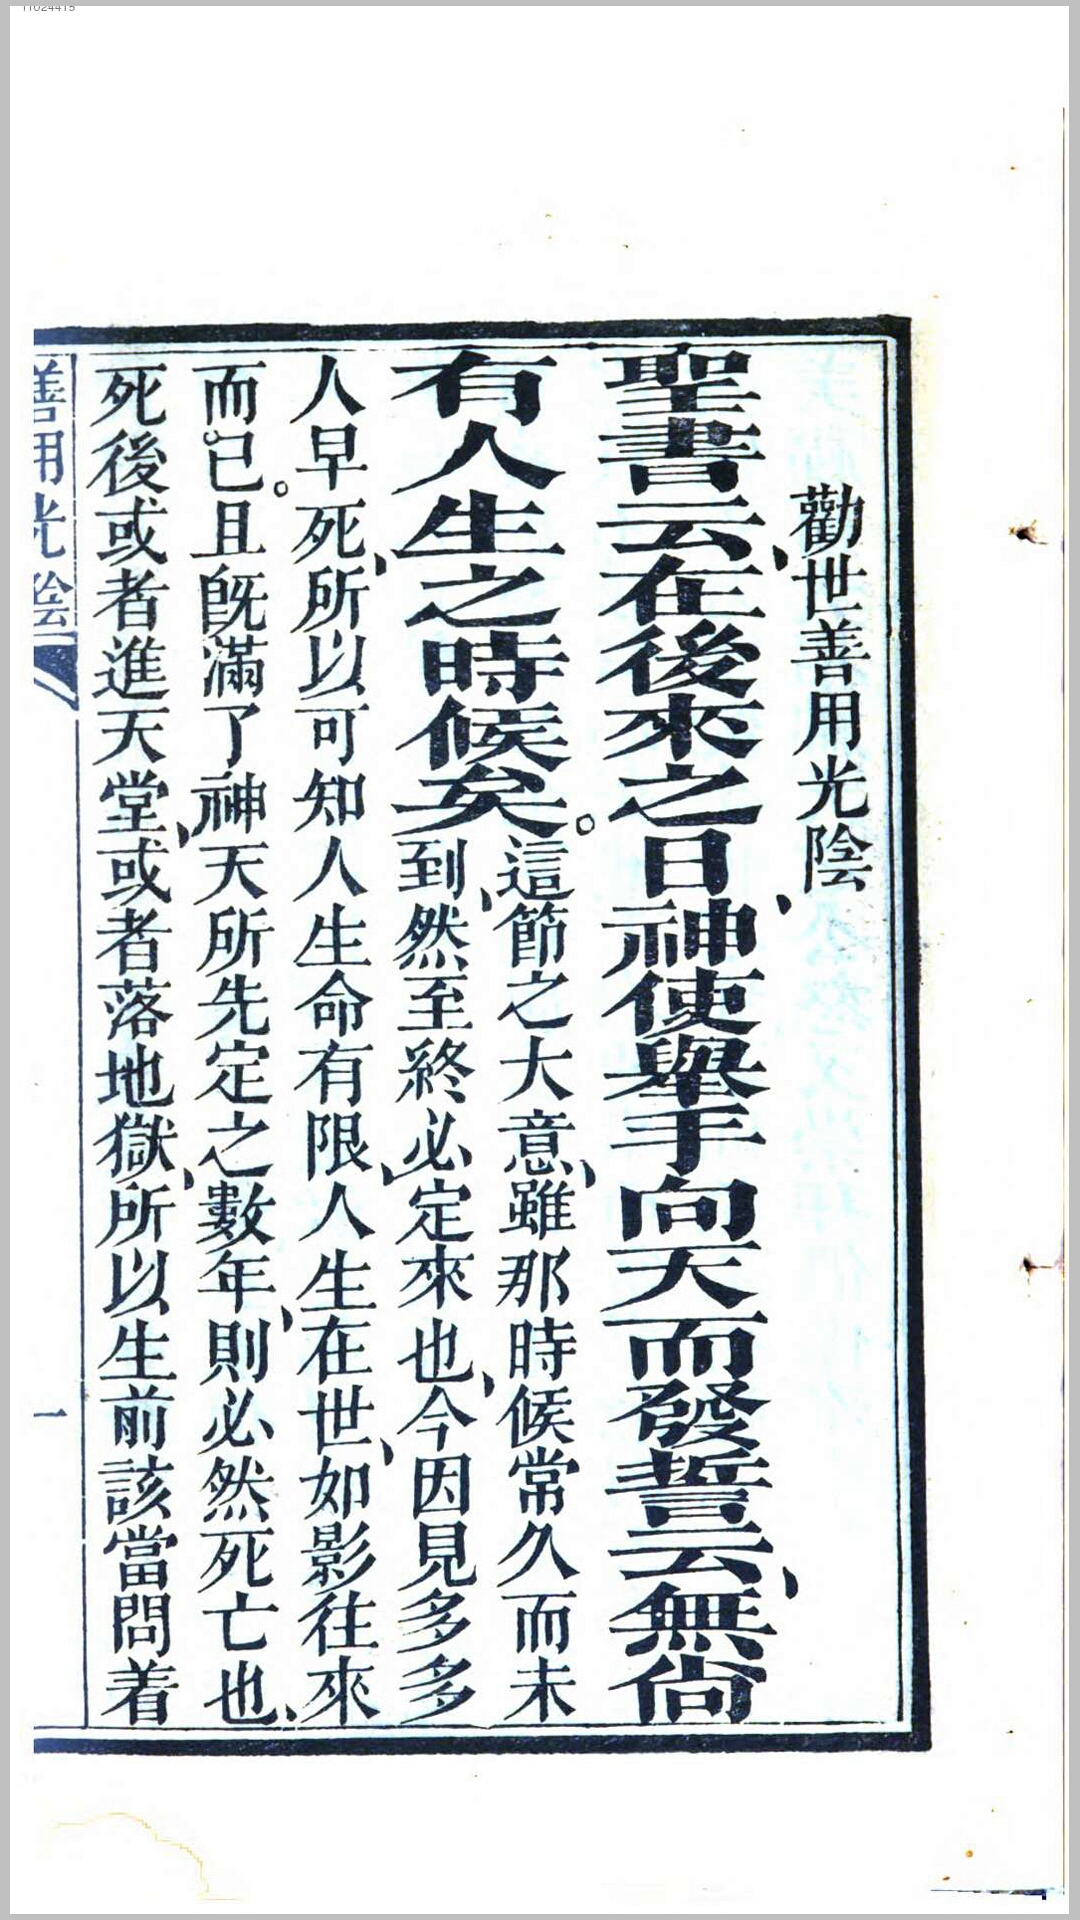 勸世善用光陰、
聖書云、在後來之日神使舉手向天而發誓云、無尙
有人生之時候矣。這節之大意、雖那時候常久而未
到、然至終必定來也、今因見多多
人早死、所以可知人生命有限、人生在世、如影往來
而已。且旣滿了神天所先定之數年、則必然死亡也、
死後或者進天堂、或者落地獄、所以生前該當問着
善用光陰
一